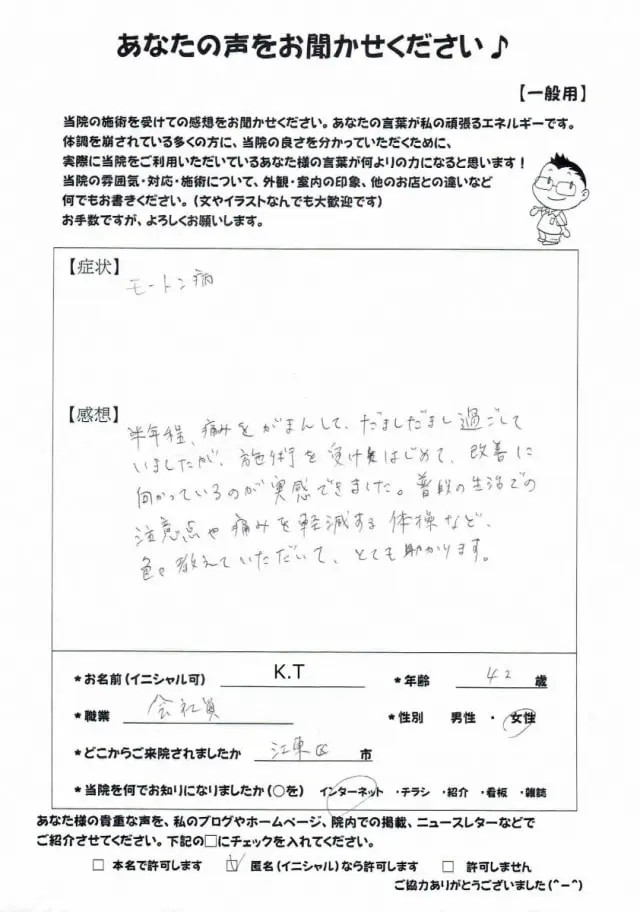 あなたの声をお聞かせください♪
【一般用】
当院の施術を受けての感想をお聞かせください。あなたの言葉が私の頑張るエネルギーです。
体調を崩されている多くの方に、当院の良さを分かっていただくために、
実際に当院をご利用いただいているあなた様の言葉が何よりの力になると思います！
当院の雰囲気・対応・施術について、外観・室内の印象、他のお店との違いなど
何でもお書きください。（文やイラストなんでも大歓迎です）
お手数ですが、よろしくお願いします。
【症状】
モートン病
【感想】
半年程、痛みをがまんして、だましだまし過ごして
いましたが、施術を受けはじめて、改善に
向かっているのが実感できました。普段の生活での
注意点や痛みを軽減する体操など、
色々教えていただいて、とても助かります。
*お名前（イニシャル可） K.T *年齢 42 歳
*職業 会社員 *性別 男性 ・ 女性
*どこからご来院されましたか 江東区 市
*当院を何でお知りになりましたか（○を） インターネット ・チラシ ・紹介 ・看板 ・雑誌
あなた様の貴重な声を、私のブログやホームページ、院内での掲載、ニュースレターなどで
ご紹介させてください。下記の□にチェックを入れてください。
□ 本名で許可します ☑ 匿名（イニシャル）なら許可します □ 許可しません
ご協力ありがとうございました（^－^）